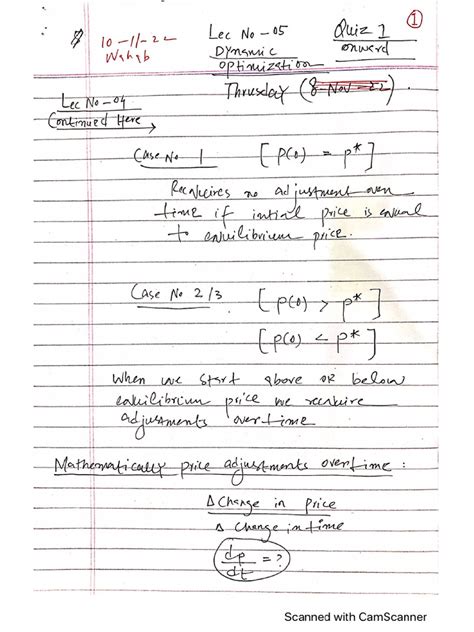 ①
10-11-22
Wahab
Lec No - 05
Dynamic
optimization
Quiz 1
onward
Thrusday (8-Nov-22).
Lec No - 04
Continued Here
Case No 1 [P(0) = P*]
Reauuires no adjustment over
time if intial price is eaual
to eauuilibrium price.
Case No 2/3 [P(0) > P*]
[P(0) < P*]
when we start above OR below
eauilibrium price we reauuire
adjustments over time
Mathematically price adjustments over time :
Δ Change in price
Δ Change in time
dp/dt = ?
Scanned with CamScanner